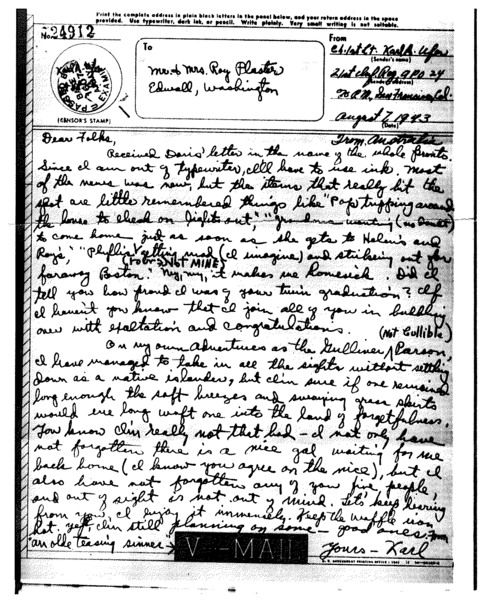 Print the complete address in plain block letters in the panel below, and your return address in the space
provided. Use typewriter, dark ink, or pencil. Write plainly. Very small writing is not suitable.
No. 24912
(CENSOR'S STAMP)
To
Mr. & Mrs. Roy Plaster
Edwall, Washington
From
Ch. 1st Lt. Karl A.
(Sender's name)
21st APO 24
(Sender's address)
% P.M., San Francisco, Cal.
August 7, 1943
(Date)
From Australia
Dear Folks,
Received Doris' letter in the name of the whole
Since I am out of typewriter, I'll have to use ink. Most
of the news was new, but the items that really hit the
spot are little remembered things like "Pop tripping around
the house to check on lights out," "grandma wanting (no doubt)
to come home just as soon as she gets to Helen's and
Roy's," "Phyllis' getting mad (I imagine) and striking out for
(YOURS NOT MINE)
faraway Boston." My, my, it makes me homesick. Did I
tell you how proud I was of your twin graduation? If
I haven't you know that I join all of you in bubbling
over with exaltation and congratulations.
(Not Gullible)
On my own adventures as the Gulliver Parson,
I have managed to take in all the sights without settling
down as a native islander, but I'm sure if one remained
long enough the soft breezes and swaying grass skirts
would ere long waft one into the land of forgetfulness.
You know I'm really not that bad - I not only have
not forgotten there is a nice gal waiting for me
back home (I know you agree on the nice), but I
also have not forgotten any of you five people,
and out of sight is not out of mind. Let's keep hearing
from you, I enjoy it immensely. Keep the waffle iron
hot, yet, I'm still planning on some - good ones, from
"an olde teasing sinner."
Yours - Karl
V - MAIL
U. S. GOVERNMENT PRINTING OFFICE : 1942